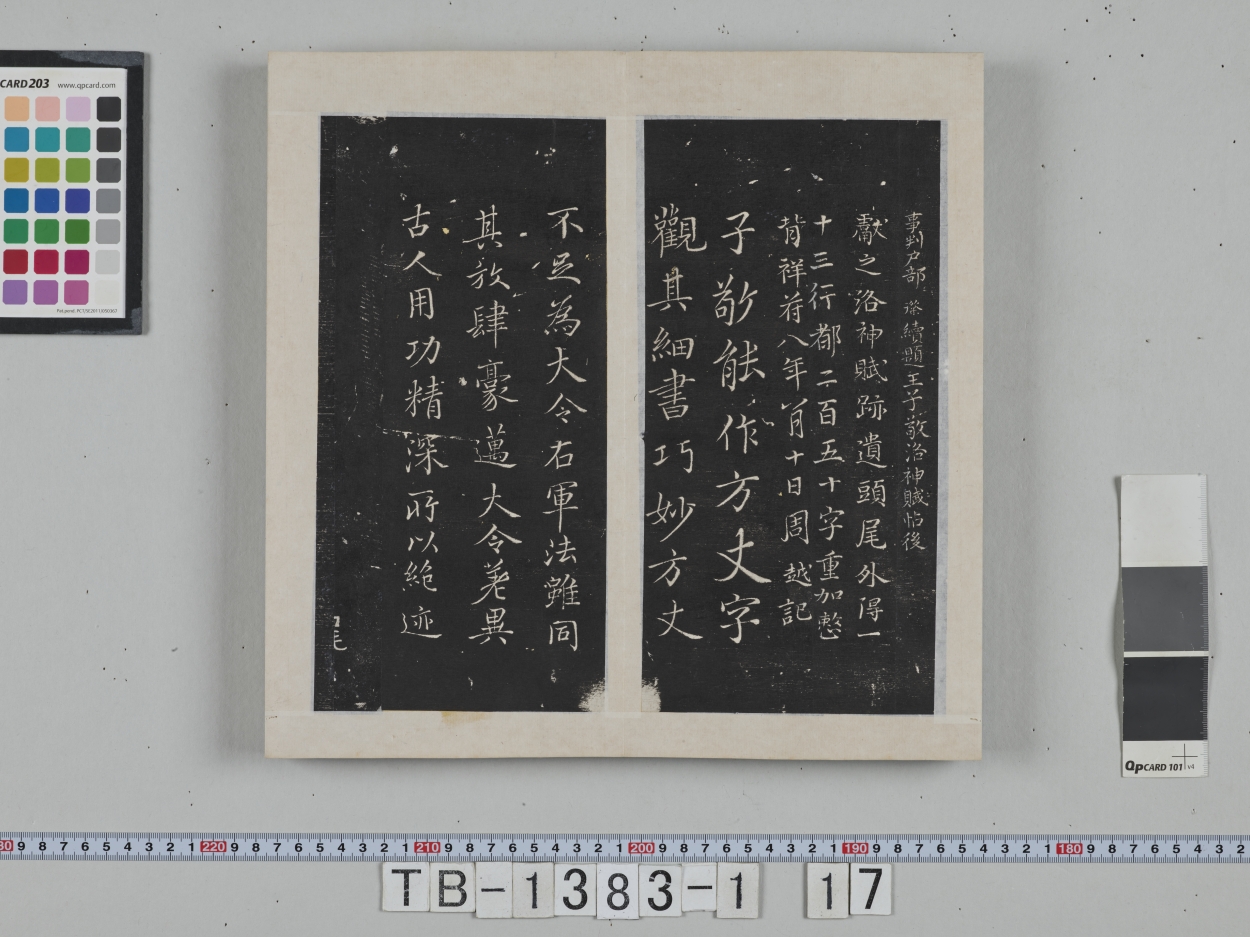 事判户部蔡續題王子敬洛神賦帖後
獻之洛神賦跡遺頭尾外得一
十三行都二百五十字重加整
背祥符八年八月十日周越記
子敬能作方丈字
觀其細書巧妙方丈
不足為大令右軍法雖同
其放肆豪邁大令差異
古人用功精深所以絶迹
CARD 203 www.qpcard.com
QPCARD 101 v4
30 9 8 7 6 5 4 3 2 1 220 9 8 7 6 5 4 3 2 1 210 9 8 7 6 5 4 3 2 1 200 9 8 7 6 5 4 3 2 1 190 9 8 7 6 5 4 3 2 1 180 9 8 7 6 5 4 3 2
TB-1383-1 17